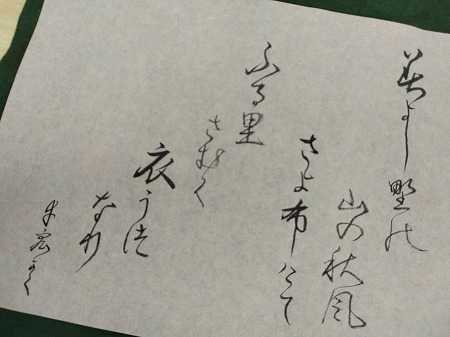 みよし野の
山の秋風
さよ布けて
ふる里
さむく
衣うつ
なり